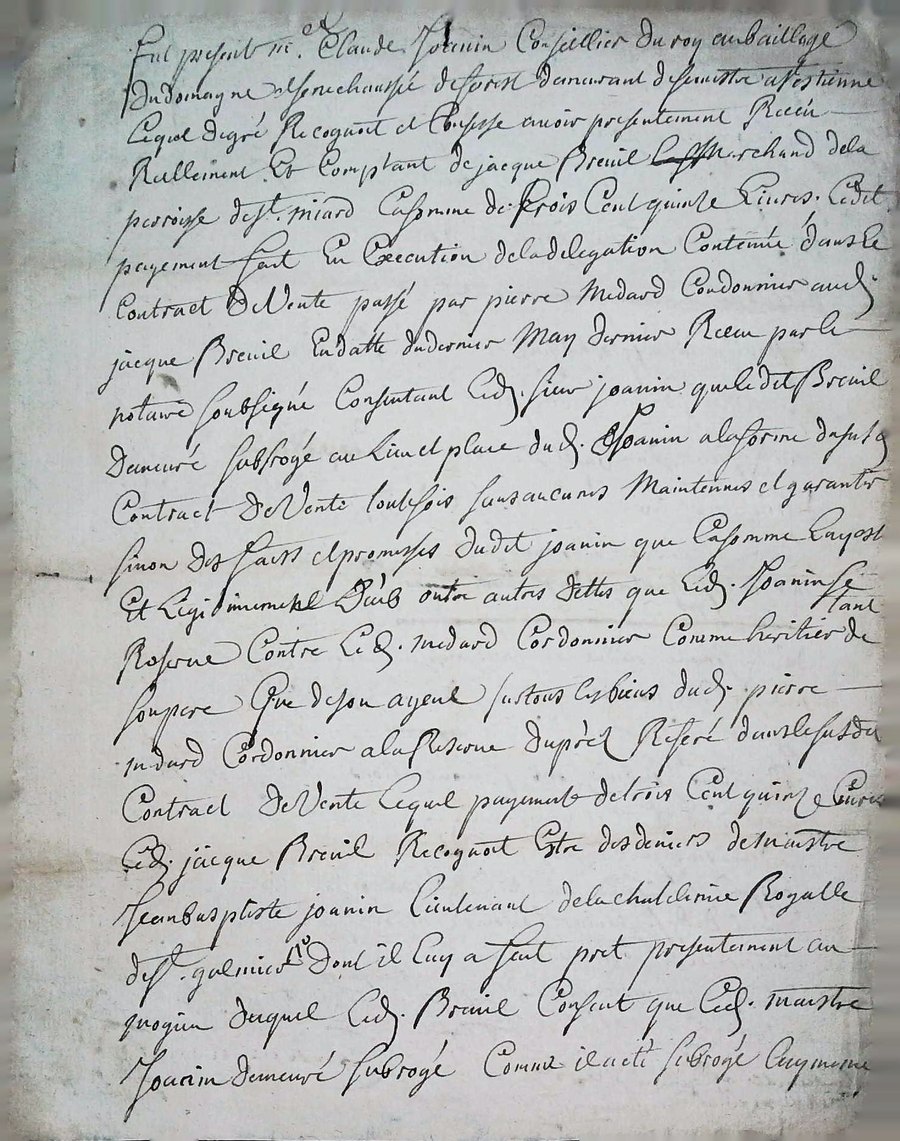 Fut present m.e Claude Joanin Conseillier du roy aubaillage
Dudomayne et senechaussé deforest demeurant a st estienne
Lequel degré Recognoit et Confesse avoir presentement Receu
Reellement Et Comptant de jacque Breuil Marchand dela
parroisse de st. miard Lasomme de trois Cent quinze Livres. Ledit
payement fait En Execution deladelegation Contenüe dansle
Contract DeVente passé par pierre Medard Cordonnier aud.
jacque Breuil Endatte dudernier May dernier Receu par le
notaire soubsigné Consentant Led. sieur joanin queledit Breuil
Demeuré subrogé au Lieu et place dud. Joanin alaforme dususd
Contract DeVente toutefois sans aucunes Maintennes et garanties
sinon des faits et promesses dudit joanin que Lasomme Luy est
Et Legitimement Düeb outre autres dettes que Led. Joanin se
Reserve Contre Led. medard Cordonnier Comme heritier tant de
son pere Que deson ayeul surtous lesbiens dud. pierre
medard Cordonnier alaReserve dupréz Referé danslesusdit
Contract DeVente Lequel payement detrois Cent quinze Livres
Led. jacque Breuil Recognoit Estre desdeniers de maistre
Jeanbasptiste joanin Lieutenant delachatelenie Royalle
de st. galmier Dont il Luy a fait pret presentement au
moyen duquel Led. Breuil Consent que Led. maistre
Joanin demeuré subrogé Comme il a eté subrogé Luymeme